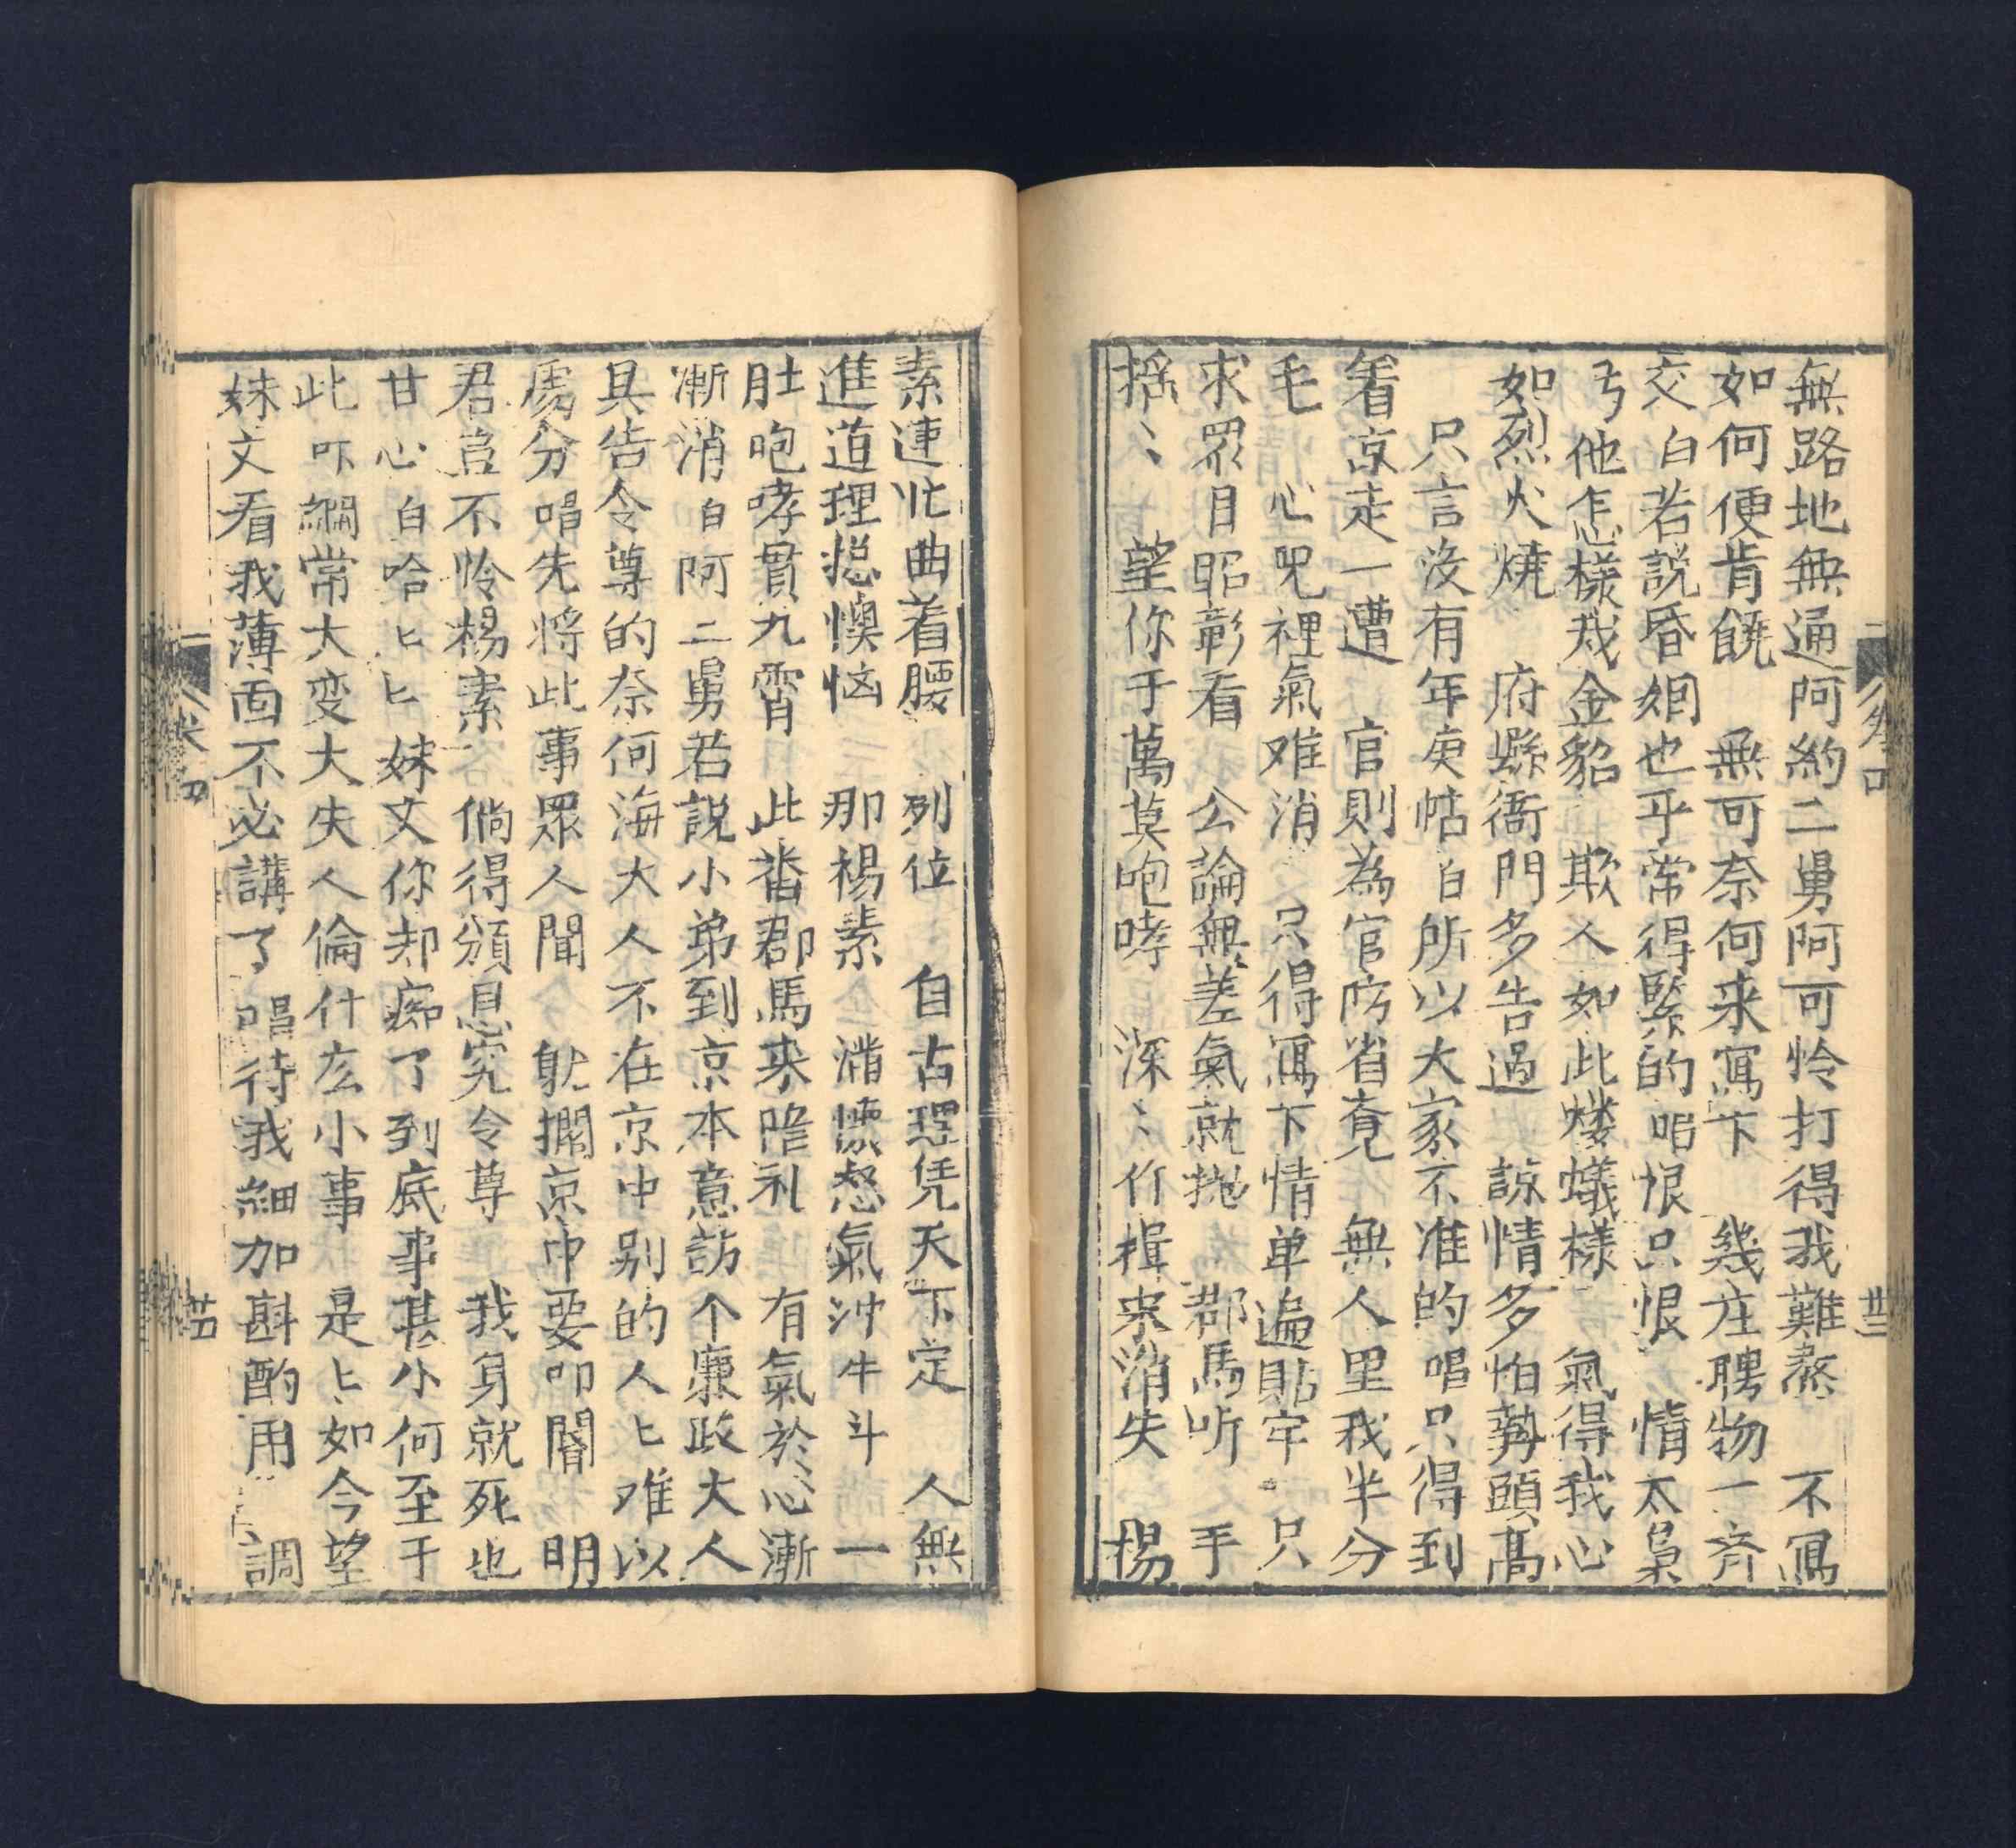 無路地無通阿約二舅阿可怜打得我難熬　不寫
如何便肯饒　無可奈何来寫下　幾庄聘物一齐
交白若説昏姻也乎常得緊的唱恨只恨　情太梟
丐他怎樣戏金貂　欺人如此螻蟻樣　氣得我心
如烈火燒　府縣衙門多告過　諒情多怕勢頭髙
只言没有年庚帖白所以大家不准的唱只得到
看京走一遭　官則為官防省　無人里我半分
毛　心児裡氣难消　只得寫下情单遍貼牢　只
求眾目昭彰看　公論無差氣就抛　郡馬听　手
摇〻　望你千萬莫咆哮　深〻作揖来消失　楊
素連忙曲着腰　列位　自古理凭天下定　人無
進道理揔懊恼　那楊素　滿懐怒氣冲牛斗　一
肚咆哮貫九霄　此畨郡馬来陪礼　有氣於心漸
漸消白阿二舅若説小弟到京本意訪个亷政大人
具告令尊的奈何海大人不在京中别的人〻难以
處分唱先將此事眾人聞　就攔京中要叩閽　明
君豈不怜楊素　倘得頒恩究令尊　我身就死也
甘心白哈〻〻妹丈你却痴了到底事甚小何至于
此吓綱常大变大失人倫什庅小事　是〻如今望
妹丈看我薄面不必講了唱待我細加斟酌用　調
卷四
卅三
卷四